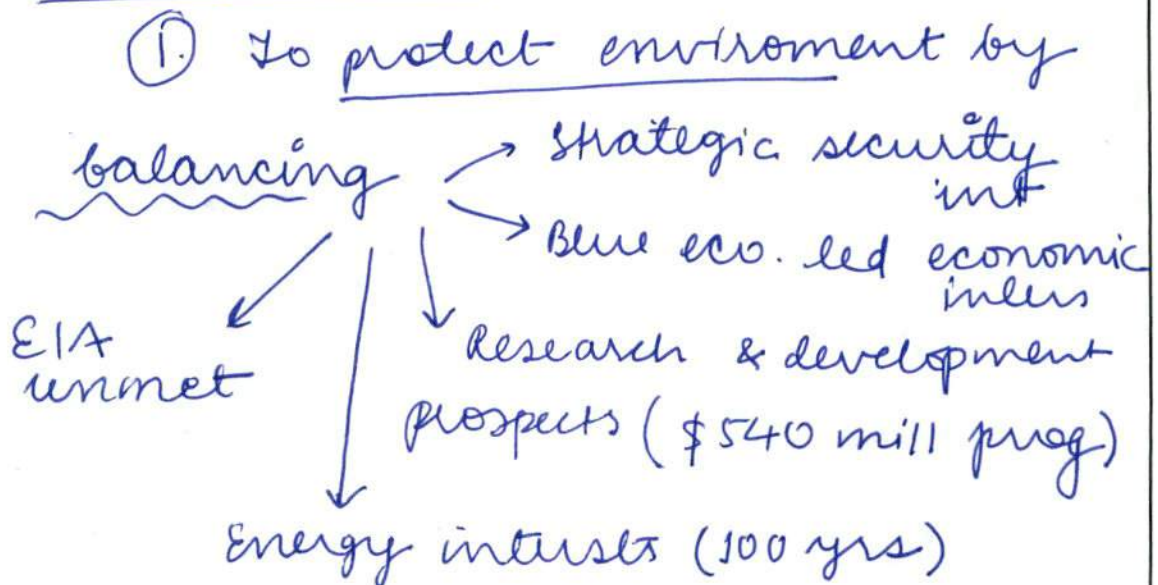 ①. To protect enviroment by
balancing
Strategic security
int
Blue eco. led economic
inters
EIA
unmet
Research & development
prospects ($540 mill prog)
Energy interests (100 yrs)